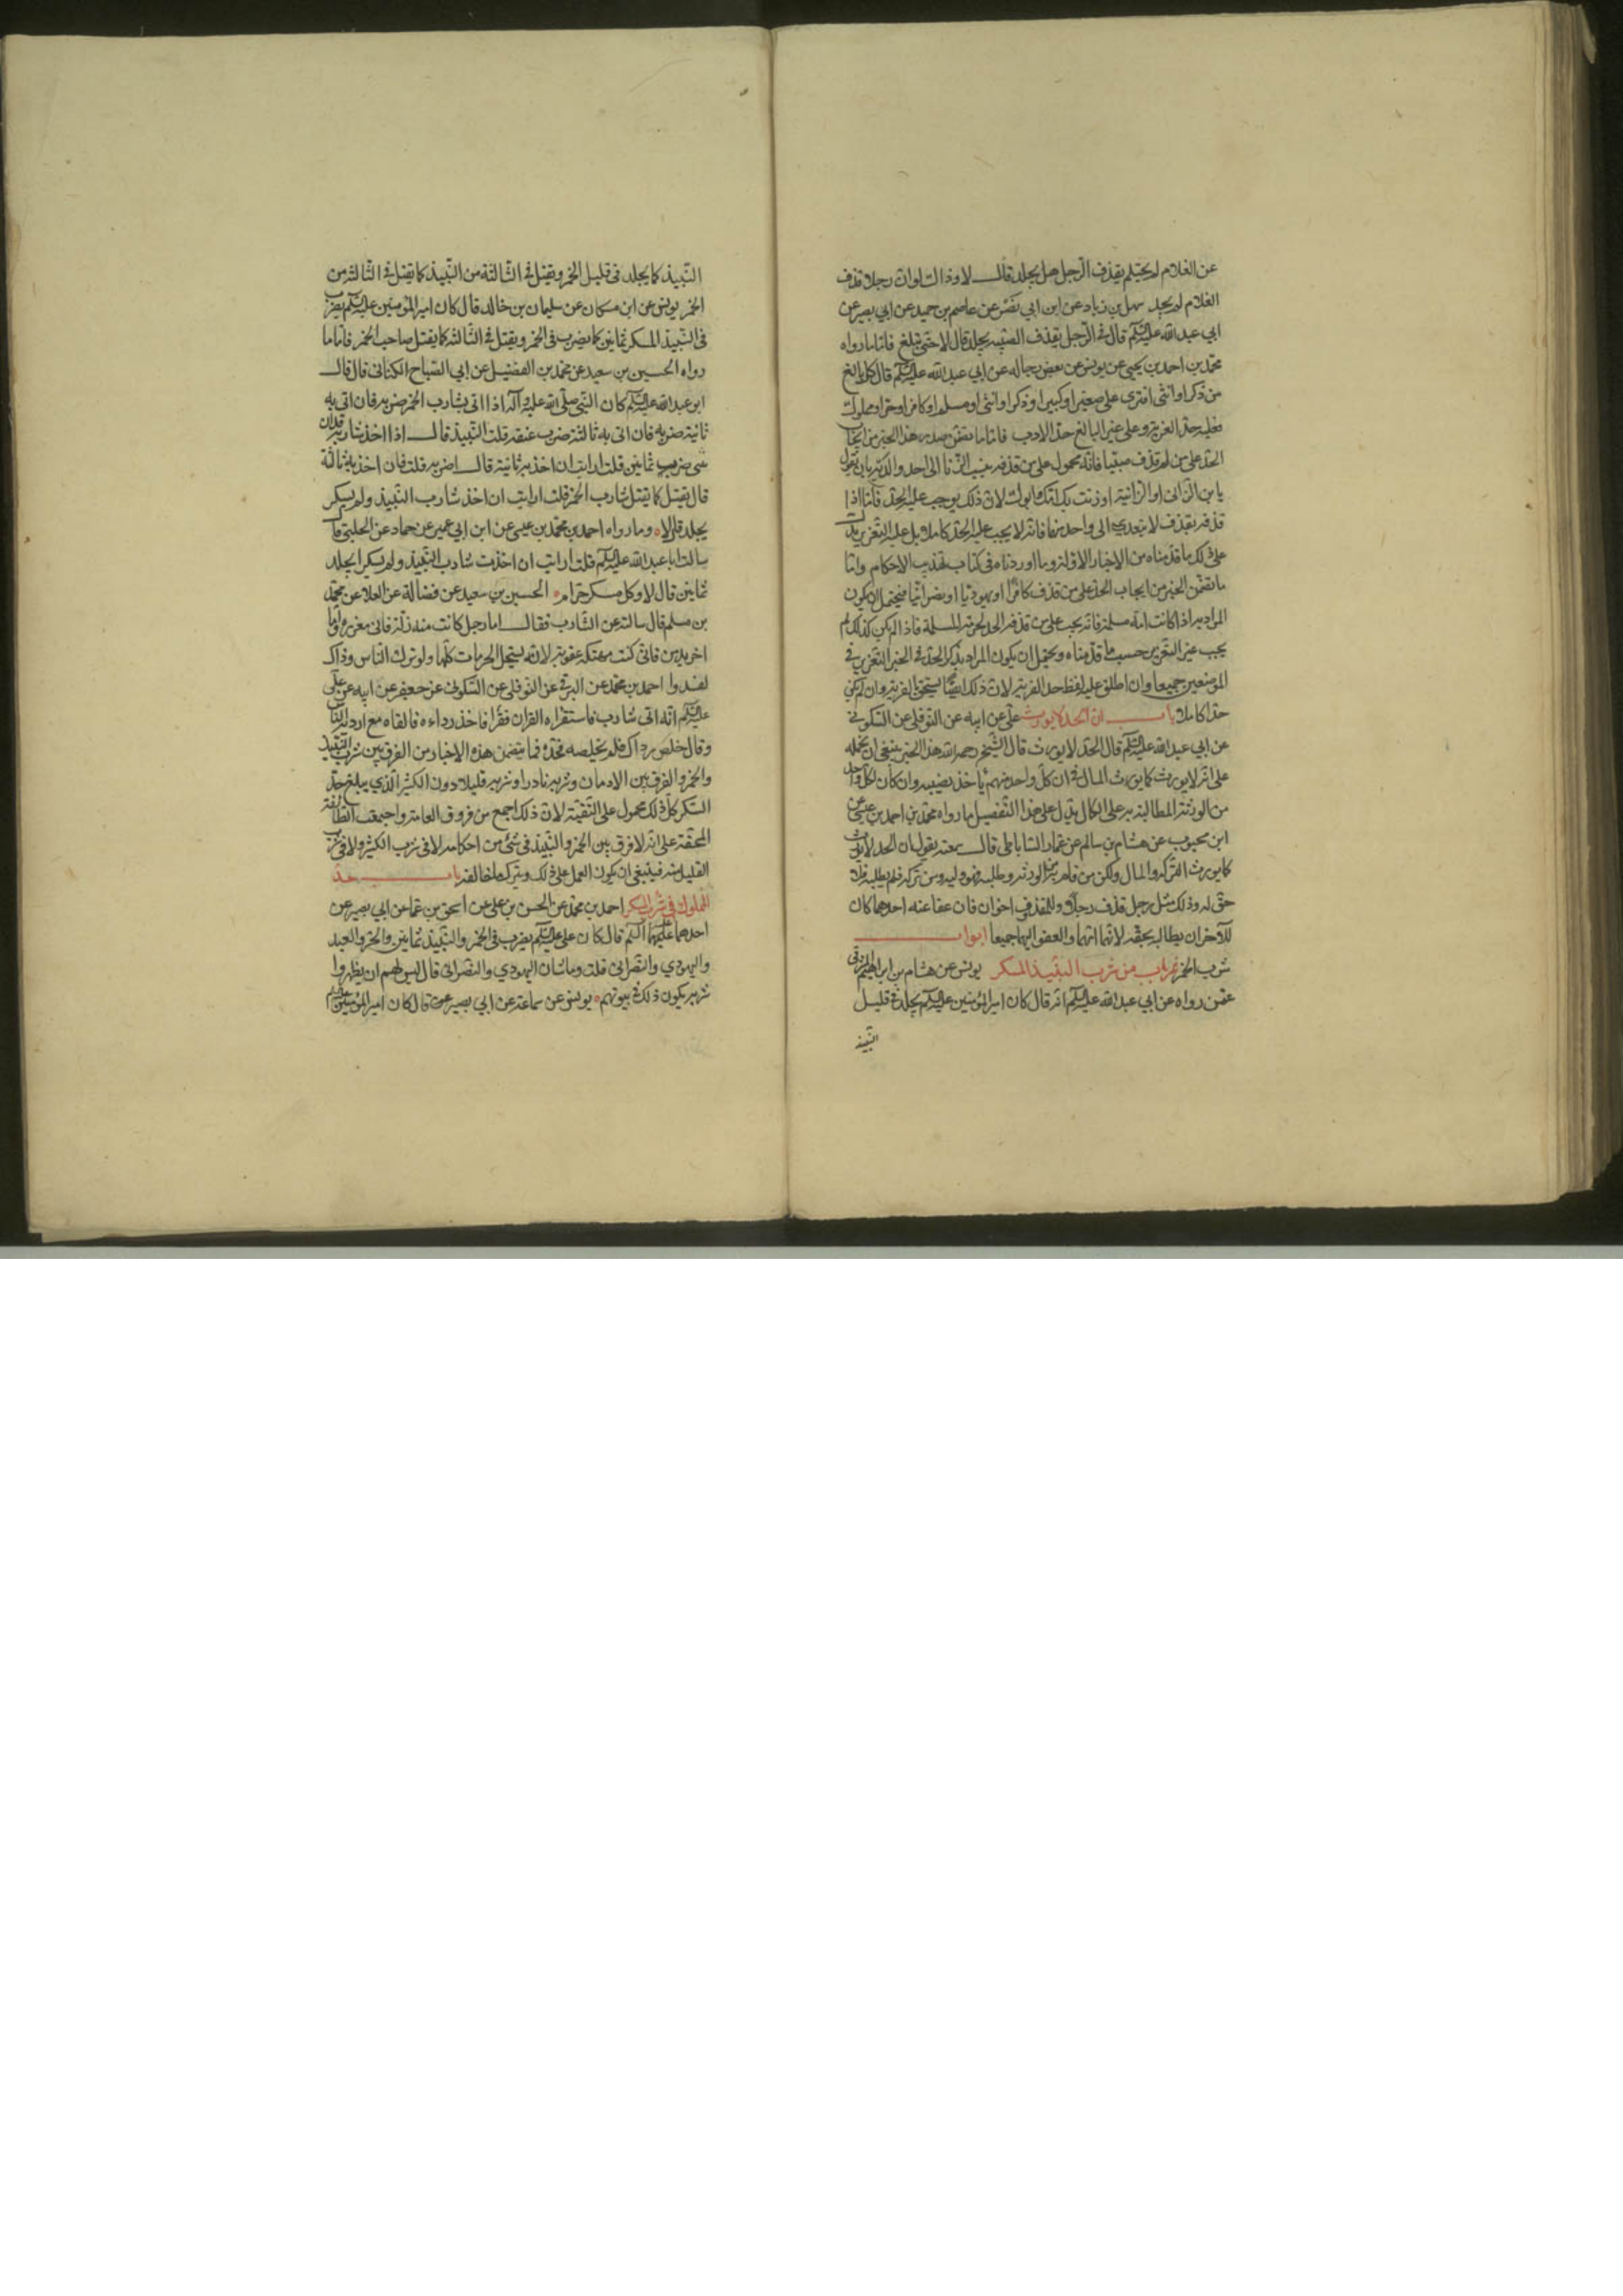 عن الغلام لم يحتلم يقذف الرجل هل يجلد قال لا وذاك لو ان رجلا قذف
الغلام لم يجلد سهل بن زياد عن ابن ابي نصر عن عاصم بن حميد عن ابي بصير عن
ابي عبد الله عليه السلم قال في الرجل يقذف الصبية يجلد قال لا حتى تبلغ فاما ما رواه
محمد بن احمد بن يحيى عن يونس عن بعض رجاله عن ابي عبد الله عليه السلم قال كل بالغ
من ذكر او انثى افترى على صغير او كبير او ذكر او انثى او مسلم او كافر او حر او مملوك
فعليه حد الفرية وعلى غير البالغ حد الادب فاما ما تضمن صدر هذا الخبر من ايجاب
الحد على من لم قذف صبيا فانه محمول على من قذفه بنسب الزنا الى احد والديه بان يقول
يا بن الزاني او الزانية او زنت بك امك او ابوك لان ذلك يوجب عليه الحد فاما اذا
قذفه بقذف لا يتعدى الى واحد منهما فانه لا يجب عليه الحد كاملا بل عليه التعزير يدل
على ذلك ما قدمناه من الاخبار الاولة وما اوردناه في كتاب تهذيب الاحكام واما
ما تضمن الخبر من ايجاب الحد على من قذف كافرا او يهوديا او نصرانيا فيحتمل ان يكون
المراد به اذا كانت امه مسلمة فانه يجب على من قذفه الحد لحرمة المسلمة فاذا لم يكن كذلك لم
يجب غير التعزير حسب ما قدمناه ويحتمل ان يكون المراد بذكر الحد في الخبر التعزير في
الموضعين جميعا وان اطلق عليه لفظ حد الفرية لان ذلك ايضا يستحق بالفرية وان لم يكن
حدا كاملا باب ان الحد لا يورث علي عن ابيه عن النوفلي عن السكوني
عن ابي عبد الله عليه السلم قال الحد لا يورث قال الشيخ رحمه الله هذا الخبر ينبغي ان نحمله
على انه لا يورث كما يورث المال في ان كل واحد منهم يأخذ نصيبه وان كان لكل واحد
من الورثة المطالبة به على الكمال يدل على هذا التفصيل ما رواه محمد بن احمد بن عيسى عن
ابن محبوب عن هشام بن سالم عن عمار الساباطي قال سمعته يقول ان الحد لا يورث
كما يورث التركة والمال ولكن من قام به من الورثة وطلبه فهو وليه ومن تركه فلم يطلبه فلا
حق له وذلك مثل رجل قذف رجلا وللمقذوف اخوان فان عفا عنه احدهما كان
للآخر ان يطالبه بحقه لانها امهما والعفو اليهما جميعا ابواب
شرب الخمر باب من شرب النبيذ المسكر يونس عن هشام بن ابراهيم المشرقي
عمن رواه عن ابي عبد الله عليه السلم انه قال كان امير المؤمنين عليه السلم يجلد في قليل
النبيذ
النبيذ كما يجلد في قليل الخمر ويقتل في الثالثة من النبيذ كما يقتل في الثالثة من
الخمر يونس عن ابن مسكان عن سليمان بن خالد قال كان امير المؤمنين عليه السلم يضرب
في النبيذ المسكر ثمانين كما يضرب في الخمر ويقتل في الثالثة كما يقتل صاحب الخمر فاما ما
رواه الحسين بن سعيد عن محمد بن الفضيل عن ابي الصباح الكناني قال قال
ابو عبد الله عليه السلم كان النبي صلى الله عليه وآله اذا اتى بشارب الخمر ضربه فان اتى به
ثانية ضربه فان اتى به ثالثة ضرب عنقه قلت النبيذ قال اذا اخذ شاربه قد ان
شى ضرب ثمانين قلت ارايت ان اخذ به ثانية قال اضربه قلت فان اخذ به ثالثة
قال يقتل كما يقتل شارب الخمر قلت ارايت ان اخذ شارب النبيذ ولم يسكر
يجلد قال لا وما رواه احمد بن محمد بن عيسى عن ابن ابي عمير عن حماد عن الحلبي قال
سالت ابا عبد الله عليه السلم قلت ارايت ان اخذت شارب النبيذ ولم يسكر ايجلد
ثمانين قال لا وكل مسكر حرام الحسين بن سعيد عن فضالة عن العلا عن محمد
بن مسلم قال سالته عن الشارب فقال اما رجل كانت منه زلة فاني معزره واما
اخر يدمن فاني كنت منهكه عقوبة لانه يستحل الحرمات كلها ولو ترك الناس وذاك
لفسدوا احمد بن محمد عن البرقي عن النوفلي عن السكوني عن جعفر عن ابيه عن علي
عليه السلم انه اتى شارب فاستقراه القران فقرا فاخذ رداءه فالقاه مع اردية الناس
وقال خلص رداك فلم يخلصه فحده فما يتضمن هذه الاخبار من الفرق بين شرب النبيذ
والخمر والفرق بين الادمان وشربه نادرا وشربه قليلا دون الكثير الذي يبلغ حد
السكر كل ذلك محمول على التقية لان ذلك اجمع من فروق العامة واجمعت الطائفة
المحقة على انه لا فرق بين الخمر والنبيذ في شئ من احكامه لا في شرب الكثير ولا في شرب
القليل منه فينبغي ان يكون العمل على ذلك ويترك ما خالفه باب حد
المملوك في شرب المسكر احمد بن محمد عن الحسن بن علي عن اسحق بن عمار عن ابي بصير عن
احدهما عليهما السلم قال كان علي عليه السلم يضرب في الخمر والنبيذ ثمانين والحر والعبد
واليهودي والنصراني قلت وما شان اليهودي والنصراني قال ليس لهم ان يظهروا
شربه يكون ذلك في بيوتهم يونس عن سماعة عن ابي بصير قال كان امير المؤمنين عليه السلم